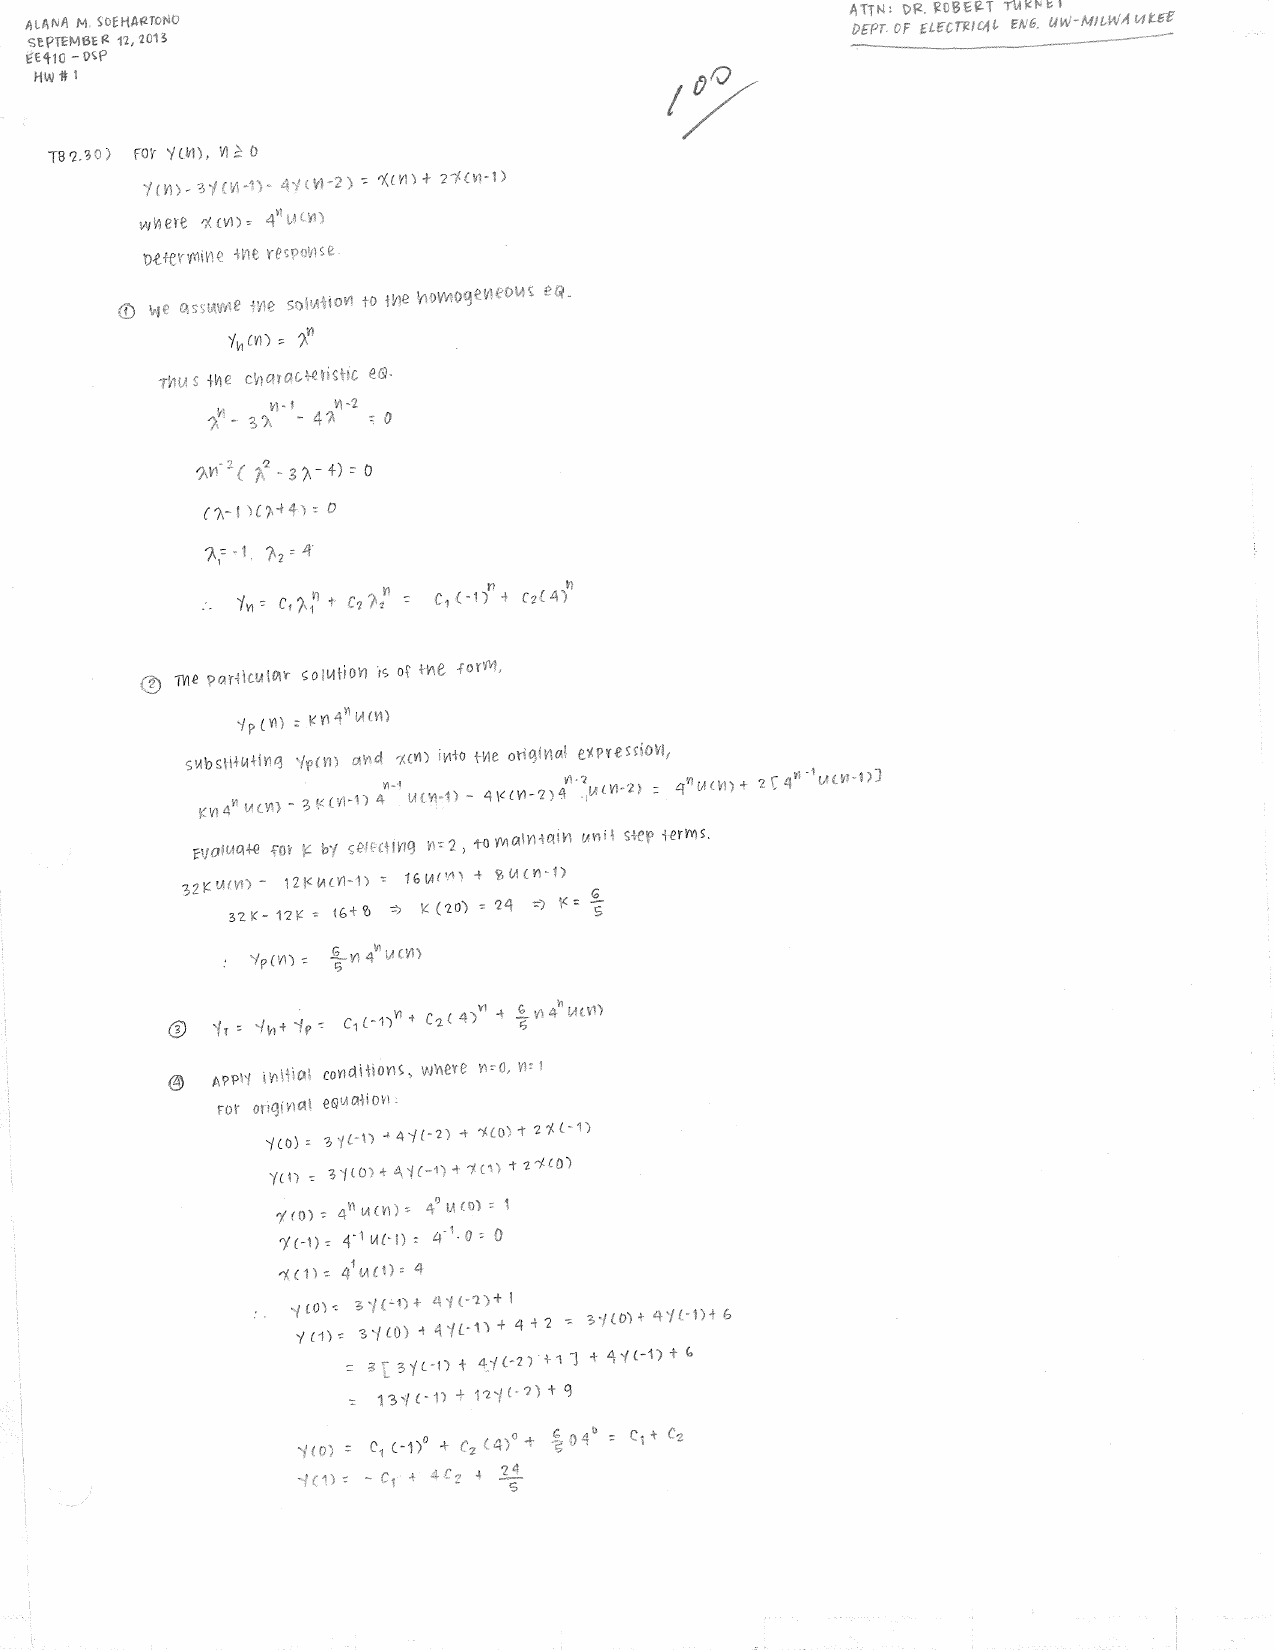 ALANA M. SOEHARTONO
SEPTEMBER 12, 2013
EE410 - DSP
HW # 1
ATTN: DR. ROBERT TURNEY
DEPT. OF ELECTRICAL ENG. UW-MILWAUKEE
100
TB2.30) FOR y(n), n ≥ 0
y(n) - 3y(n-1) - 4y(n-2) = x(n) + 2x(n-1)
where x(n) = 4^n u(n)
Determine the response.
① We assume the solution to the homogeneous eq.
y_h(n) = λ^n
Thus the characteristic eq.
λ^n - 3λ^(n-1) - 4λ^(n-2) = 0
λn^-2 ( λ^2 - 3λ - 4) = 0
(λ-1)(λ+4) = 0
λ_1 = -1, λ_2 = 4
∴ y_h = C_1 λ_1^n + C_2 λ_2^n = C_1 (-1)^n + C_2 (4)^n
② The particular solution is of the form,
y_p(n) = Kn4^n u(n)
substituting y_p(n) and x(n) into the original expression,
Kn4^n u(n) - 3K(n-1) 4^(n-1) u(n-1) - 4K(n-2) 4^(n-2) u(n-2) = 4^n u(n) + 2[4^(n-1) u(n-1)]
Evaluate for K by selecting n=2, to maintain unit step terms.
32K u(n) - 12K u(n-1) = 16 u(n) + 8 u(n-1)
32K - 12K = 16+8 ⇒ K(20) = 24 ⇒ K = 6/5
∴ y_p(n) = 6/5 n 4^n u(n)
③ y_T = y_h + y_p = C_1(-1)^n + C_2(4)^n + 6/5 n 4^n u(n)
④ APPLY initial conditions, where n=0, n=1
For original equation:
y(0) = 3y(-1) + 4y(-2) + x(0) + 2x(-1)
y(1) = 3y(0) + 4y(-1) + x(1) + 2x(0)
x(0) = 4^n u(n) = 4^0 u(0) = 1
x(-1) = 4^-1 u(-1) = 4^-1 · 0 = 0
x(1) = 4^1 u(1) = 4
∴ y(0) = 3y(-1) + 4y(-2) + 1
y(1) = 3y(0) + 4y(-1) + 4 + 2 = 3y(0) + 4y(-1) + 6
= 3[3y(-1) + 4y(-2) + 1] + 4y(-1) + 6
= 13y(-1) + 12y(-2) + 9
y(0) = C_1 (-1)^0 + C_2 (4)^0 + 6/5 0 4^0 = C_1 + C_2
y(1) = - C_1 + 4C_2 + 24/5